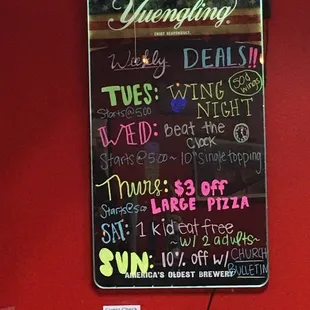 Yuengling
Weekly DEALS!!
TUES: WING NIGHT
Starts@5:00
WED: beat the clock
Starts@5:00 ~ 10" single topping
Thurs: $3 OFF LARGE PIZZA
Starts@5:00
SAT: 1 kid eat free
~w/ 2 adults~
SUN: 10% off w/ CHURCH BULLETIN
AMERICA'S OLDEST BREWERY